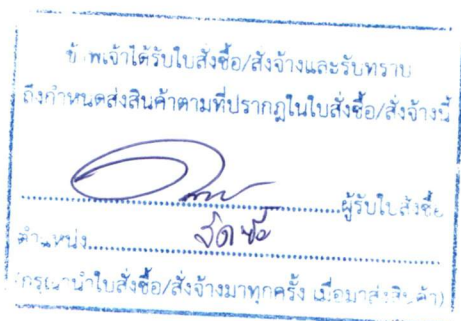 ข้าพเจ้าได้รับใบสั่งซื้อ/สั่งจ้างและรับทราบ
ถึงกำหนดส่งสินค้าตามที่ปรากฏในใบสั่งซื้อ/สั่งจ้างนี้
ผู้รับใบสั่งซื้อ
ตำแหน่ง จัดซื้อ
(กรุณานำใบสั่งซื้อ/สั่งจ้างมาทุกครั้ง เมื่อมาส่งสินค้า)